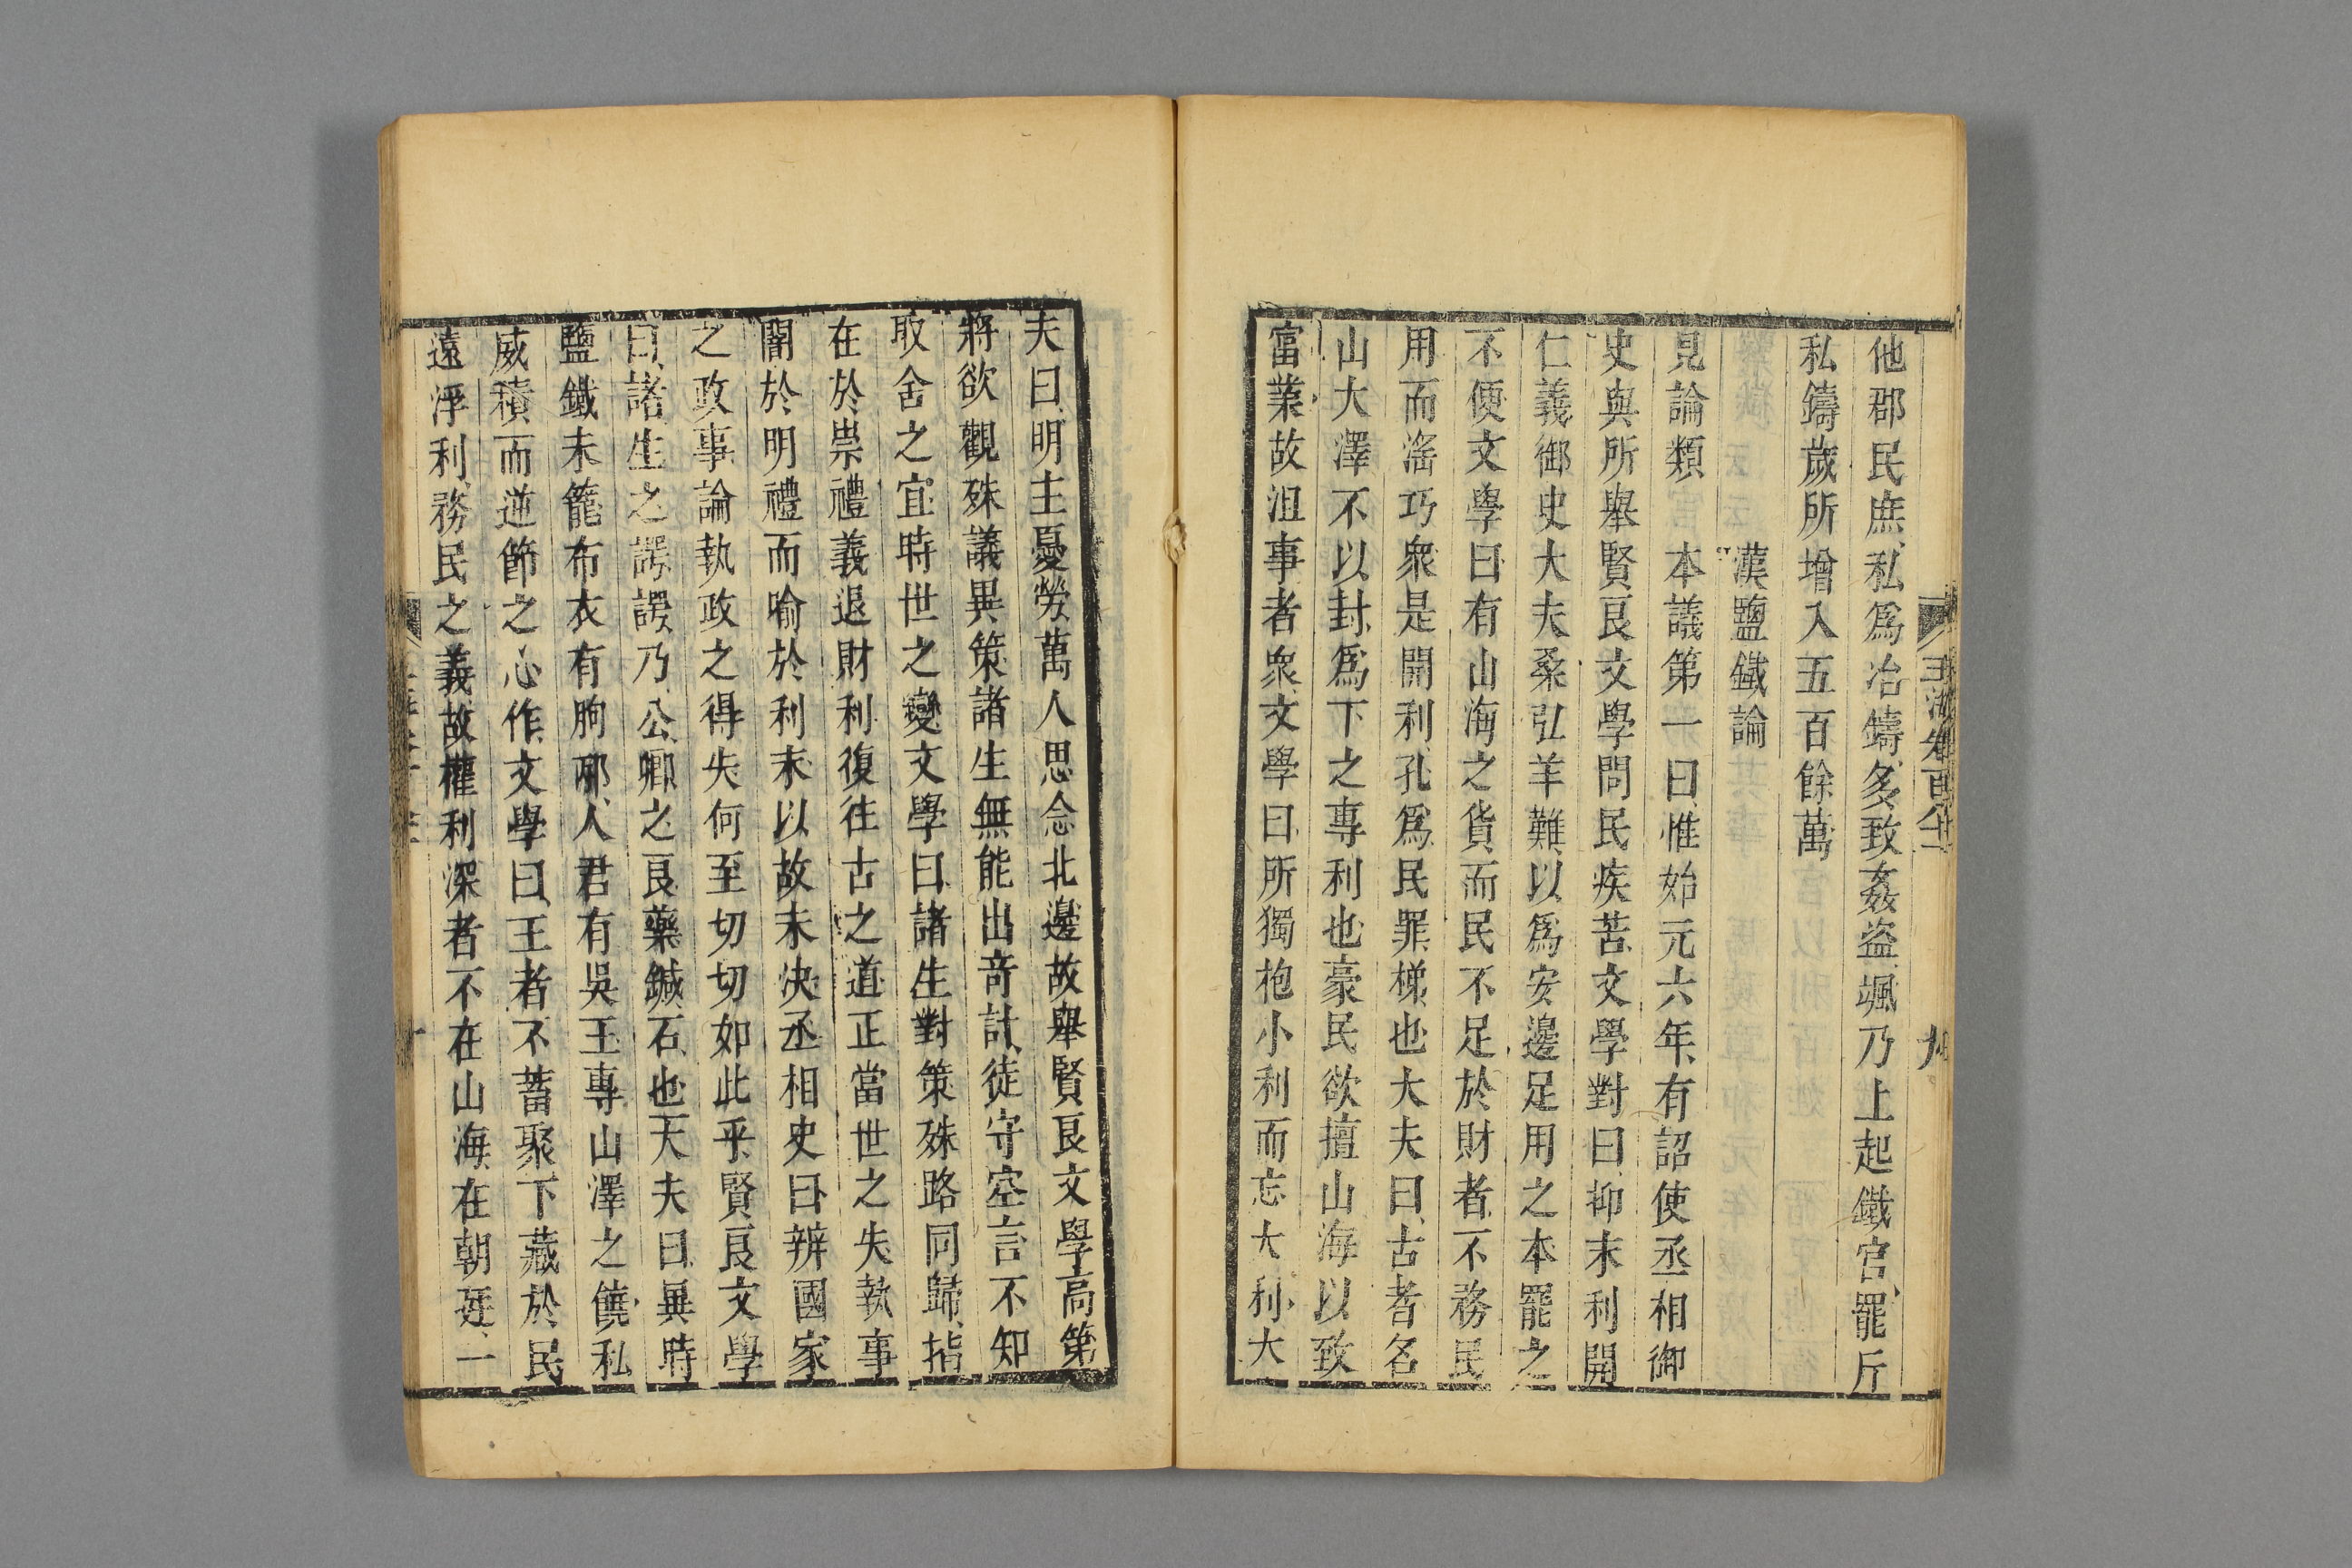 他郡民庶私爲冶鑄多致姦盜颯乃上起鐵官罷斥
私鑄歲所增入五百餘萬
漢鹽鐵論
見論類 本議第一曰惟始元六年有詔使丞相御
史與所舉賢良文學問民疾苦文學對曰抑末利開
仁義御史大夫桑弘羊難以爲安邊足用之本罷之
不便文學曰有山海之貨而民不足於財者不務民
用而滛巧衆是開利孔爲民罪梯也大夫曰古者名
山大澤不以封爲下之專利也豪民欲擅山海以致
富業故沮事者衆文學曰所獨抱小利而忘大利大
夫曰明主憂勞萬人思念北邊故舉賢良文學高第
將欲觀殊議異策諸生無能出奇計徒守空言不知
取舍之宜時世之變文學曰諸生對策殊路同歸指
在於崇禮義退財利復往古之道正當世之失執事
闇於明禮而喻於利末以故未決丞相史曰辨國家
之政事論執政之得失何至切切如此乎賢良文學
曰諸生之諤諤乃公卿之良藥鍼石也大夫曰異時
鹽鐵未籠布衣有朐邴人君有吳王專山澤之饒私
威積而逆節之心作文學曰王者不蓄聚下藏於民
遠浮利務民之義故權利深者不在山海在朝廷一
玉海卷百八十一
九
十